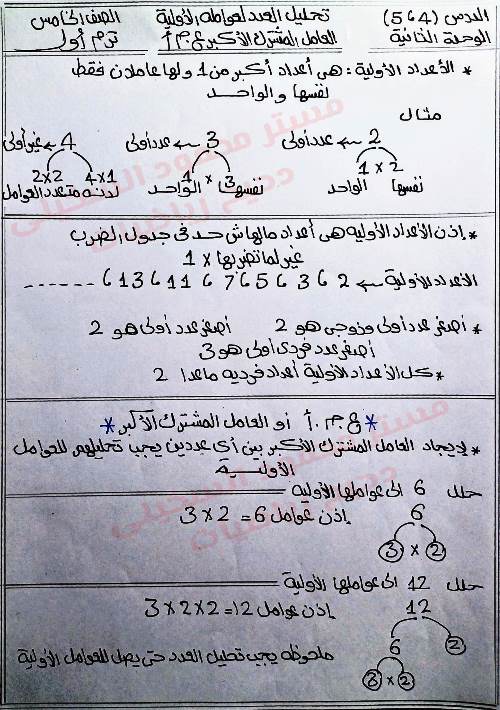 الدرس (4 6 5) تحليل العدد لعوامله الأولية الصف الخامس
الوحدة الثانية العامل المشترك الأكبر ع.م.أ ترم أول
* الأعداد الأولية : هى أعداد أكبر من 1 ولها عاملان فقط
نفسها والواحد
مثال
2 ← عدد أولى 3 ← عدد أولى 4 ← غير أولى
1 × 2 1 × 3 4×1 2×2
نفسها الواحد نفسها الواحد لأنه متعدد العوامل
* إذن الأعداد الأولية هى أعداد مالهاش حد فى جدول الضرب
غير لما تضربها × 1
الأعداد الأولية ← 2 6 3 6 5 6 7 6 11 6 13 6 ......
* أصغر عدد أولى وزوجى هو 2 أصغر عدد أولى هو 2
أصغر عدد فردى أولى هو 3
* كل الأعداد الأولية أعداد فرديه ماعدا 2
* ع.م.أ أو العامل المشترك الأكبر *
* لإيجاد العامل المشترك الأكبر بين أى عددين يجب تحليلهم للعوامل
الأولية
حلل 6 الى عواملها الأولية
6 إذن عوامل 6 = 2 × 3
2 × 3
حلل 12 الى عواملها الأولية
12 إذن عوامل 12 = 2 × 2 × 3
2 6
2 × 3
ملحوظه يجب تحليل العدد حتى يصل للعوامل الأولية
مستر محمود
مستر محمود